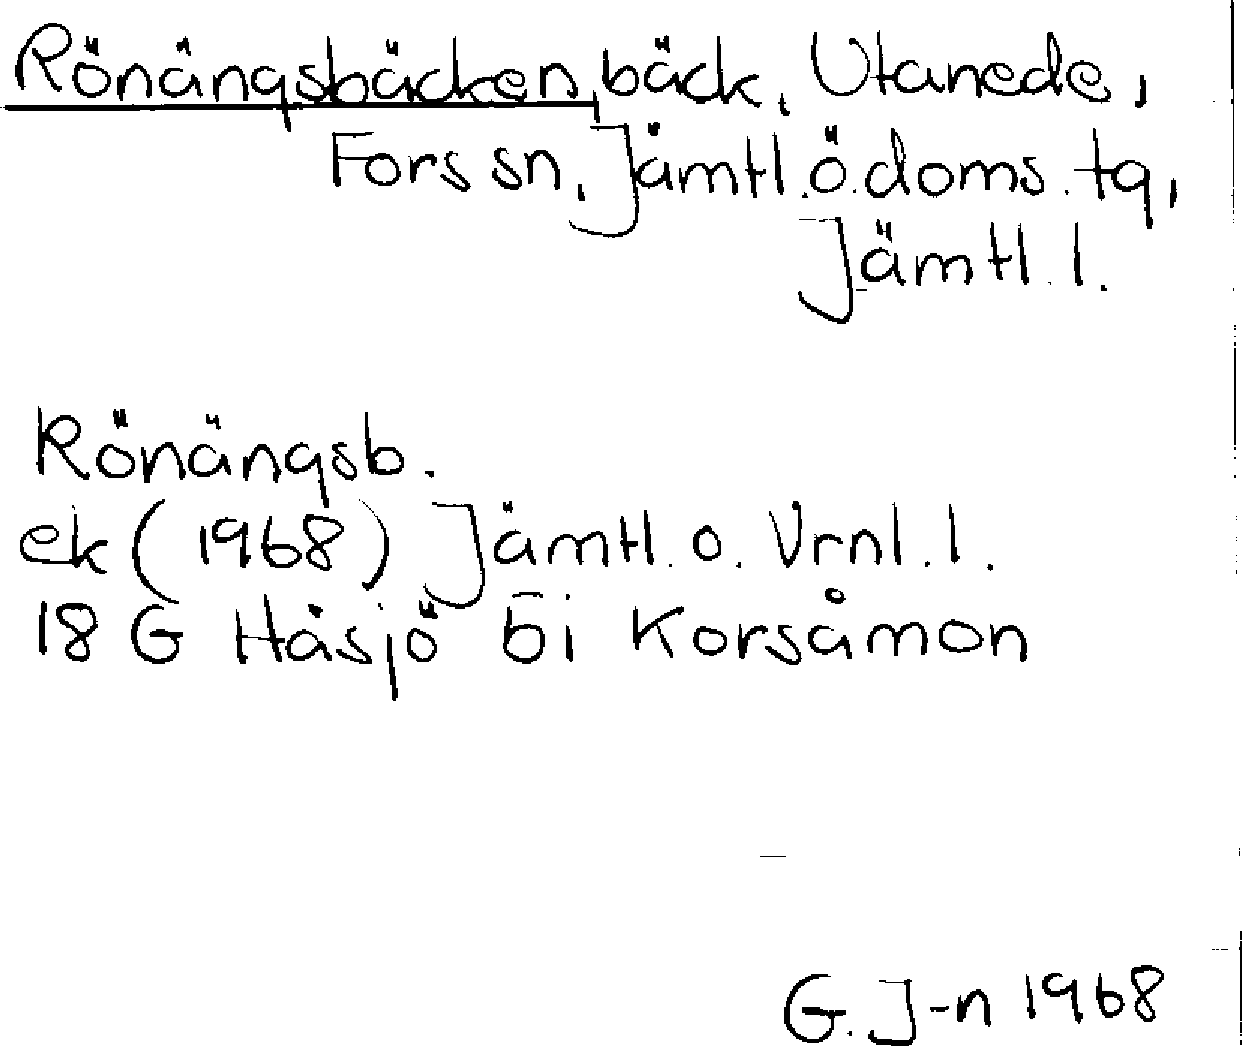 Rönängsbäcken, bäck, Utanede,
Fors sn, Jämtl. ö. doms. tg,
Jämtl. l.
Rönängsb.
ek (1968) Jämtl. o. Vrnl. l.
18 G Håsjö 5i Korsåmon
G. J-n 1968